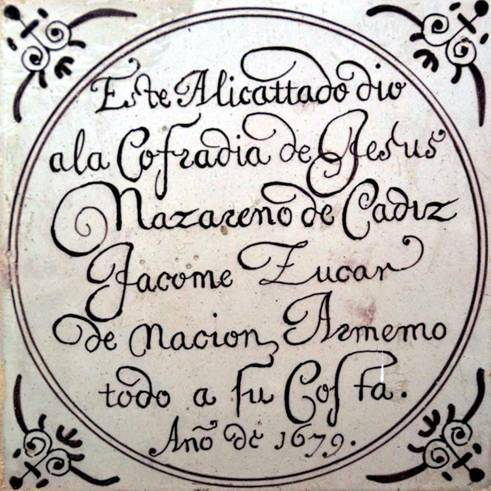 Este Alicattado dio
a la Cofradia de Jesus
Nazareno de Cadiz
Jacome Zucar
de nacion Armemo
todo a su Costa.
Año de 1679.